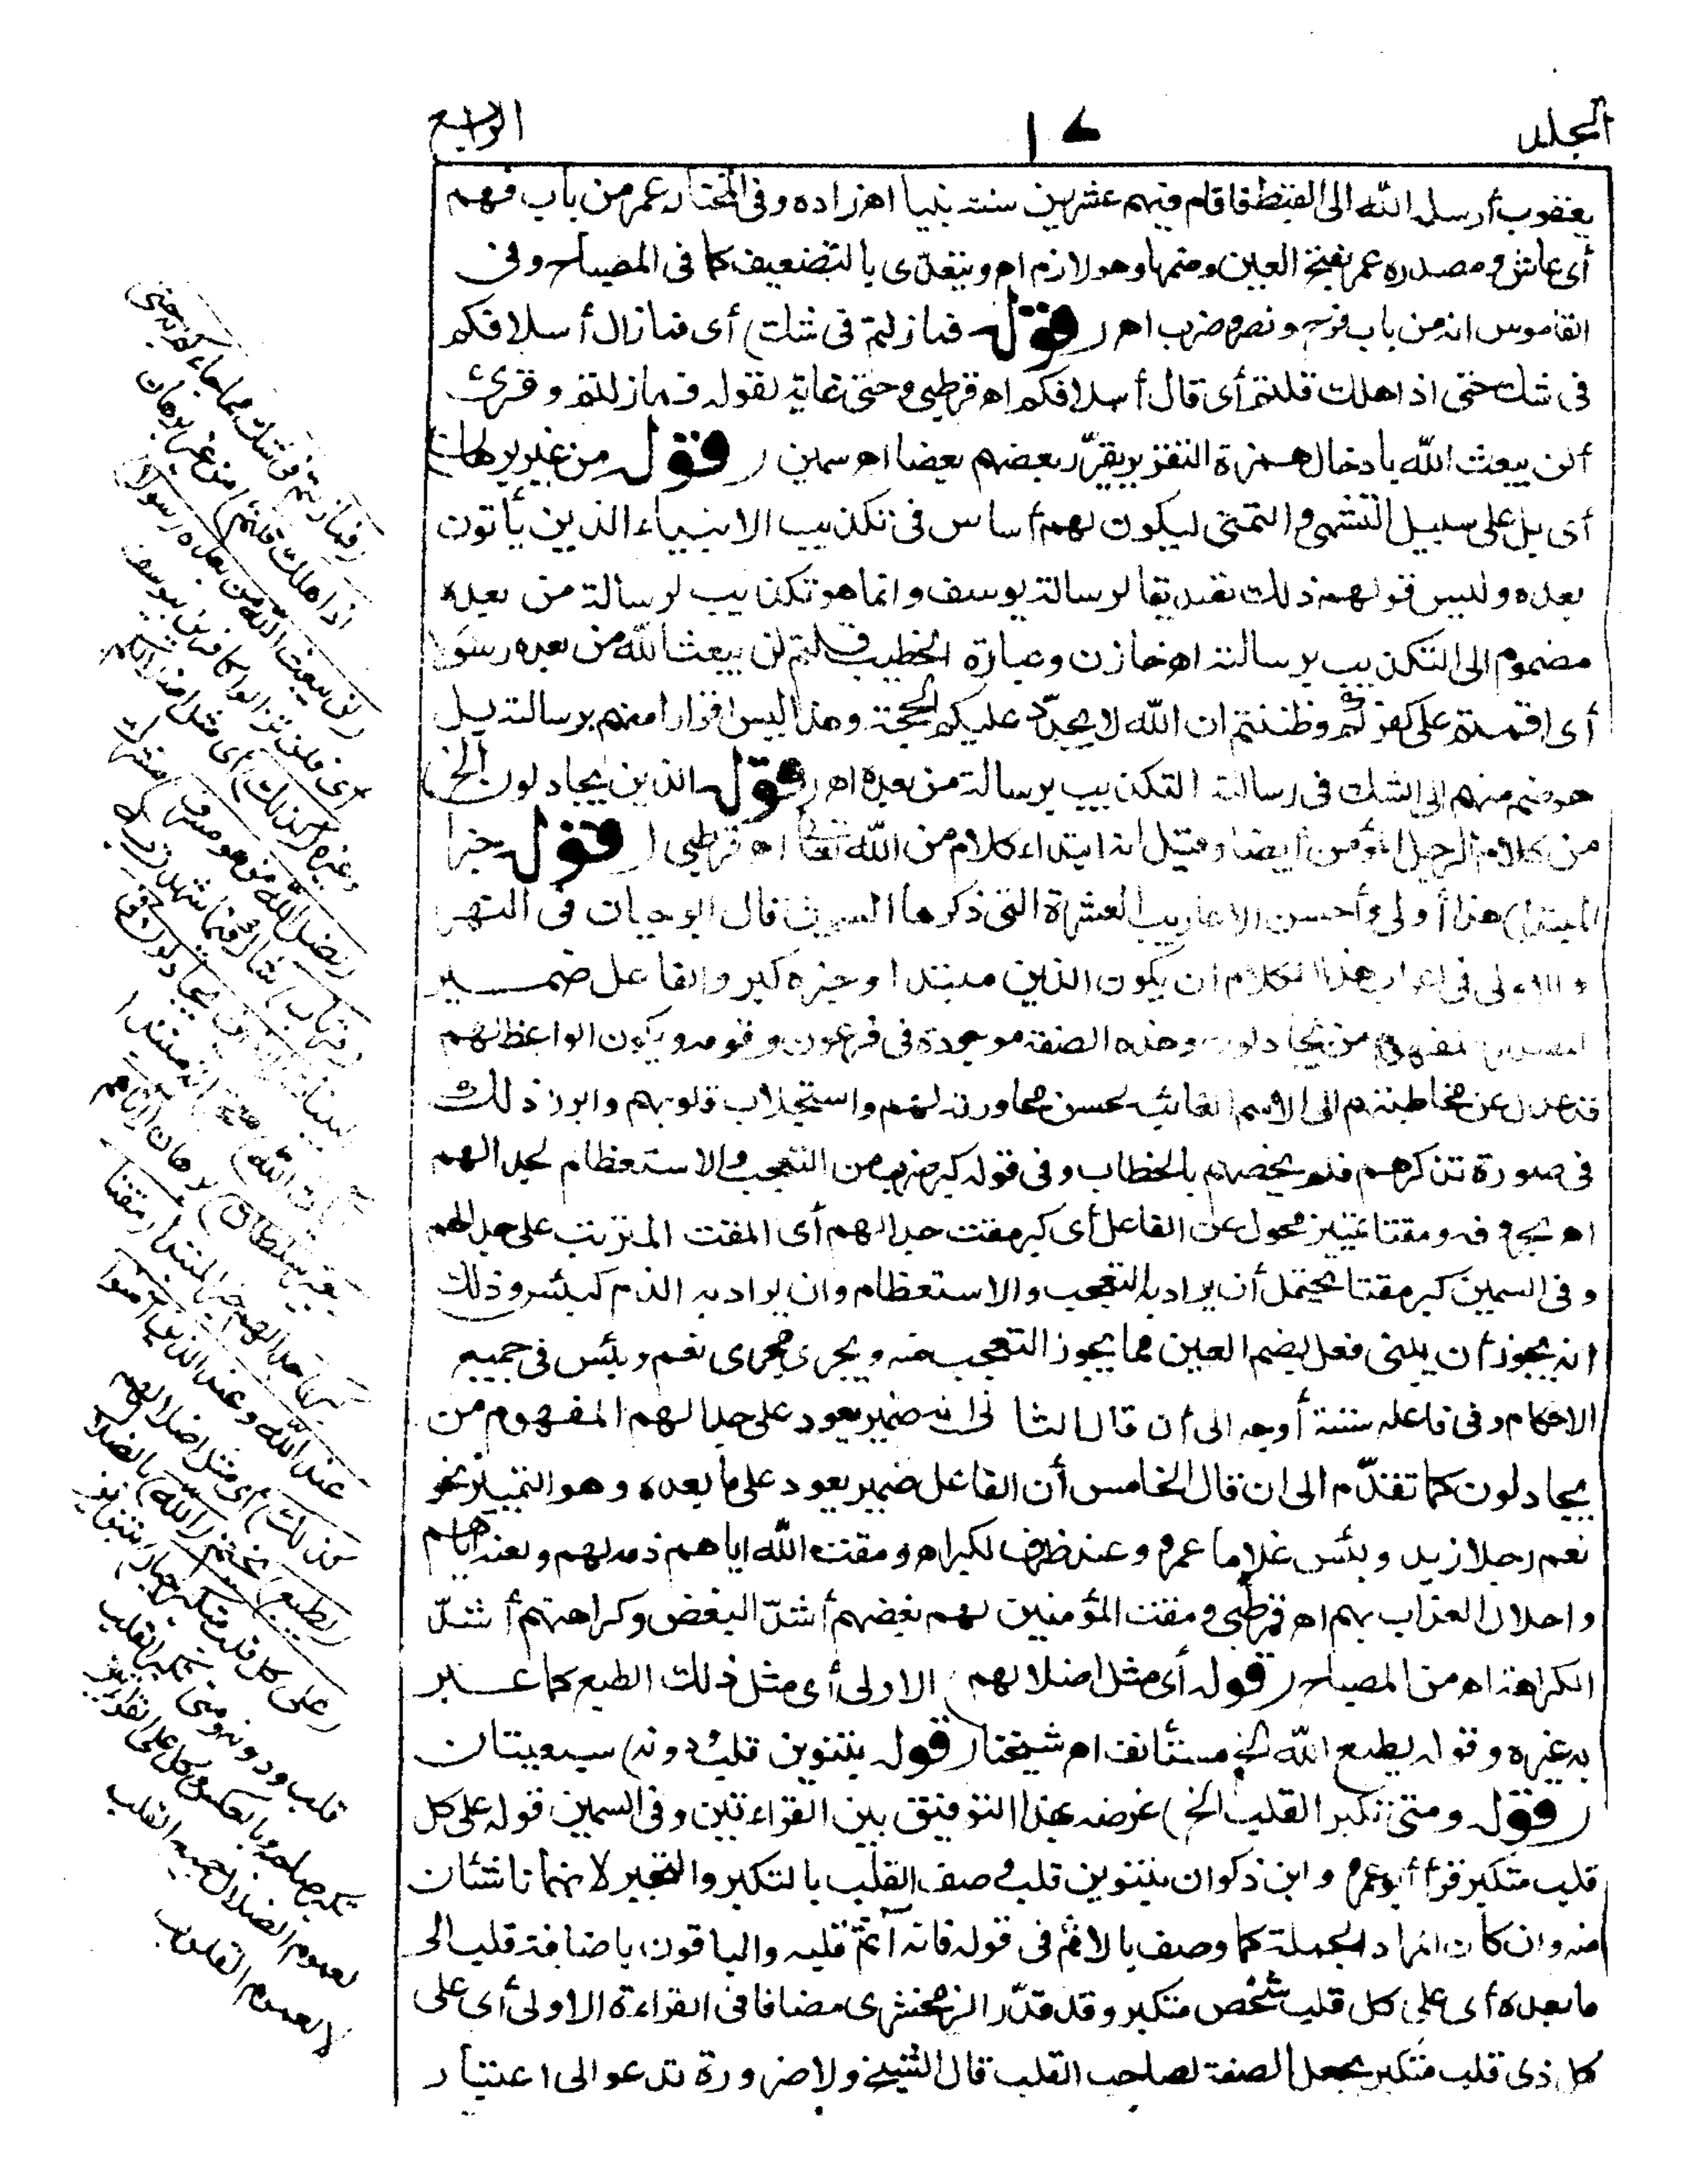 المجلد ١٧ الرابع
يعقوب أرسله الله الى القبط فاقام فيهم عشرين سنة نبيا اه زاده وفى المختار عمر من باب فهم
أى عاش ومصدره عمر بفتح العين وضمها وهو لازم اه ويتعدّى بالتضعيف كما فى المصباح وفى
القاموس انه من باب فرح ونصر وضرب اه (قوله فما زلتم فى شك) أى فما زال أسلافكم
فى شك حتى اذا هلك قلتم أى قال أسلافكم اه قرطبى وحتى غاية لقوله فما زلتم وقرئ
ألن يبعث الله بادخال همزة التقرير يقرّر بعضهم بعضا اه سمين (قوله من غير برهان)
أى بل على سبيل التشهى والتمنى ليكون لهم أساس فى تكذيب الانبياء الذين يأتون
بعده وليس قولهم ذلك تصديقا لرسالة يوسف وانما هو تكذيب لرسالة من بعده
مضموم الى التكذيب برسالته اه خازن وعبارة الخطيب قلتم لن يبعث الله من بعده رسولا
أى اقمتم على كفركم وظننتم ان الله لا يجدّد عليكم الحجة وهذا ليس اقرارا منهم برسالته بل
هو ضم منهم الى الشك فى رسالته التكذيب برسالة من بعده اه (قوله الذين يجادلون الخ)
من كلام الرجل المؤمن أيضا وقيل انه ابتداء كلام من الله تعالى اه قرطبى (قوله خبر
المبتدا) هذا أولى وأحسن الاعاريب العشرة التى ذكرها السمين قال ابو حيان فى النهر
والاولى فى اعراب هذا الكلام ان يكون الذين مبتدا وخبره كبر والفاعل ضمير
المصدر المفهوم من يجادلون وهذه الصفة موجودة فى فرعون وقومه ويكون الواعظ لهم
قد عدل عن مخاطبتهم الى الاسم الغائب لحسن محاورته لهم واستجلاب قلوبهم وابرز ذلك
فى صورة تذكرهم فلم يخصهم بالخطاب وفى قوله كبر ضرب من التعجب والاستعظام لجدالهم
اه بحروفه ومقتا تمييز محول عن الفاعل أى كبر مقت جدالهم أى المقت المترتب على جدالهم
وفى السمين كبر مقتا يحتمل أن يراد به التعجب والاستعظام وان يراد به الذم كبئس وذلك
انه يجوز أن يبنى فعل بضم العين مما يجوز التعجب منه ويجرى مجرى نعم وبئس فى جميع
الاحكام وفى فاعله ستة أوجه الى أن قال الثانى انه ضمير يعود على جدالهم المفهوم من
يجادلون كما تقدّم الى ان قال الخامس أن الفاعل ضمير يعود على ما بعده وهو التمييز نحو
نعم رجلا زيد وبئس غلاما عمرو وعند ظرف لكبر اه ومقت الله اياهم ذمه لهم ولعنه اياهم
واحلال العذاب بهم اه قرطبى ومقت المؤمنين لهم بغضهم أشدّ البغض وكراهتهم أشدّ
الكراهة اه من المصباح (قوله أى مثل اضلالهم) الاولى أى مثل ذلك الطبع كما عبر
به غيره وقوله يطبع الله الخ مستأنف اه شيخنا (قوله بتنوين قلب ودونه) سبعيتان
(قوله ومتى تكبر القلب الخ) غرضه بهذا التوفيق بين القراءتين وفى السمين قوله على كل
قلب متكبر قرأ أبو عمرو وابن ذكوان بتنوين قلب وصف القلب بالتكبر والتجبر لانهما ناشئان
منه وان كان المراد الجملة كما وصف بالاثم فى قوله فانه آثم قلبه والباقون باضافة قلب الى
ما بعده أى على كل قلب شخص متكبر وقد قدّر الزمخشرى مضافا فى القراءة الاولى أى على
كل ذى قلب متكبر بجعل الصفة لصاحب القلب قال الشيخ ولا ضرورة تدعو الى اعتبار
(فما زلتم فى شك مما جاءكم به حتى
اذا هلك قلتم) من غير برهان
(لن يبعث الله من بعده رسولا)
أى فلن تزالوا كافرين بيوسف
وغيره (كذلك) أى مثل اضلالكم
(يضل الله من هو مسرف) مشرك
(مرتاب) شاك فيما شهدت به
البينات (الذين يجادلون فى
آيات الله) مبتدا
(بغير سلطان) برهان (أتاهم
كبر) جدالهم خبر المبتدا (مقتا
عند الله وعند الذين آمنوا
كذلك) أى مثل اضلالهم
(يطبع) يختم (الله) بالضلال
(على كل قلب متكبر جبار) بتنوين
قلب ودونه ومتى تكبر القلب
تكبر صاحبه وبالعكس وكل على القراءتين
لعموم الضلال جميع القلب
لا لعموم القلوب